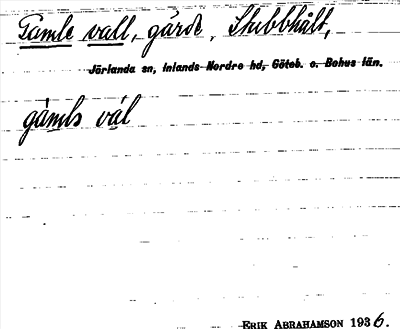 Gamle vall, gärde, Stubbhält,
Jörlanda sn, Inlands Nordre hd, Göteb. o. Bohus län.
gàmls vál
ERIK ABRAHAMSON 1936.